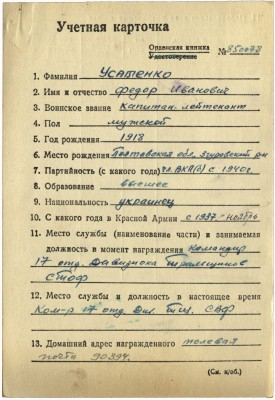 Учетная карточка
Орденская книжка
Удостоверение
№
1. Фамилия Усатенко
2. Имя и отчество Федор Иванович
3. Воинское звание Капитан-лейтенант
4. Пол мужской
5. Год рождения 1918
6. Место рождения Полтавская обл., Згуровский р-н
7. Партийность (с какого года) чл. ВКП(б) с 1940 г.
8. Образование высшее
9. Национальность украинец
10. С какого года в Красной Армии с 1937 - ноябрь
11. Место службы (наименование части) и занимаемая
должность в момент награждения командир
17 отд. Дивизиона Тральщиков
СТОФ
12. Место службы и должность в настоящее время
Ком-р 17 отд. Див. тщ. СВФ
13. Домашний адрес награжденного полевая
почта 90394.
(См. н/об.)